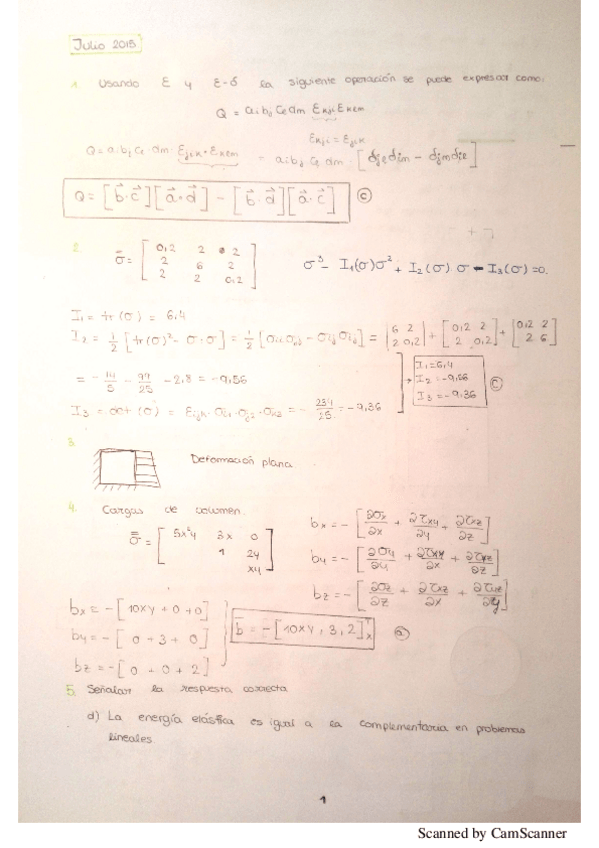 Julio 2015
1. Usando ε y ε-δ la siguiente operación se puede expresar como:
Q = ai bj ce dm Enji Enem
Enji = Ejin
Q = ai bj ce dm · Ejin · Enem = ai bj ce dm · [δje δim - δjm δie]
Q = [b⃗·c⃗][a⃗·d⃗] - [b⃗·d⃗][a⃗·c⃗] ⓒ
2. σ̄ = [ 0,2 2 2
2 6 2
2 2 0,2 ]
σ³ - I₁(σ)σ² + I₂(σ) σ - I₃(σ) = 0.
I₁ = tr (σ) = 6,4
I₂ = 1/2 [tr (σ)² - σ:σ] = 1/2 [σii σjj - σij σij] = |6 2 2 0,2| + [0,2 2 2 0,2] + [0,2 2 2 6]
= - 14/5 - 99/25 - 2,8 = -9,56
I₁ = 6,4
I₂ = -9,56
I₃ = -9,36 ⓒ
I₃ = det (σ) = Eijk · σi1 · σj2 · σk3 = - 234/25 = -9,36
3.
Deformación plana
4. Cargas de volumen.
σ̿ = [ 5x²y 3x 0
1 2y
xy ]
bx = - [∂σx/∂x + ∂τxy/∂y + ∂τxz/∂z]
by = - [∂σy/∂y + ∂τxy/∂x + ∂τyz/∂z]
bz = - [∂σz/∂z + ∂τxz/∂x + ∂τyz/∂y]
bx = - [10xy + 0 + 0]
by = - [0 + 3 + 0]
b̄ = - [10xy, 3, 2]ᵀ ⓐ
bz = - [0 + 0 + 2]
5. Señalar la respuesta correcta
d) La energía elástica es igual a la complementaria en problemas
lineales
1
Scanned by CamScanner